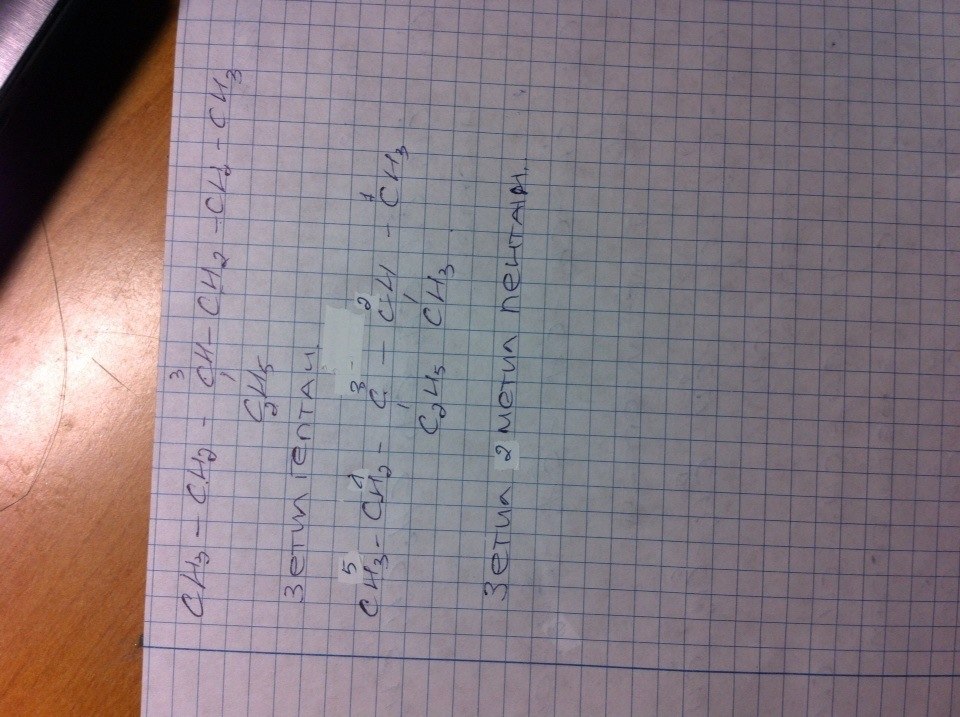 3
CH3 - CH2 - CH - CH2 - CH2 - CH3
C2H5
3 етил гептан.
5 4 3 2 1
CH3 - CH2 - C - CH - CH3
C2H5 CH3
3 етил 2 метил пентан.